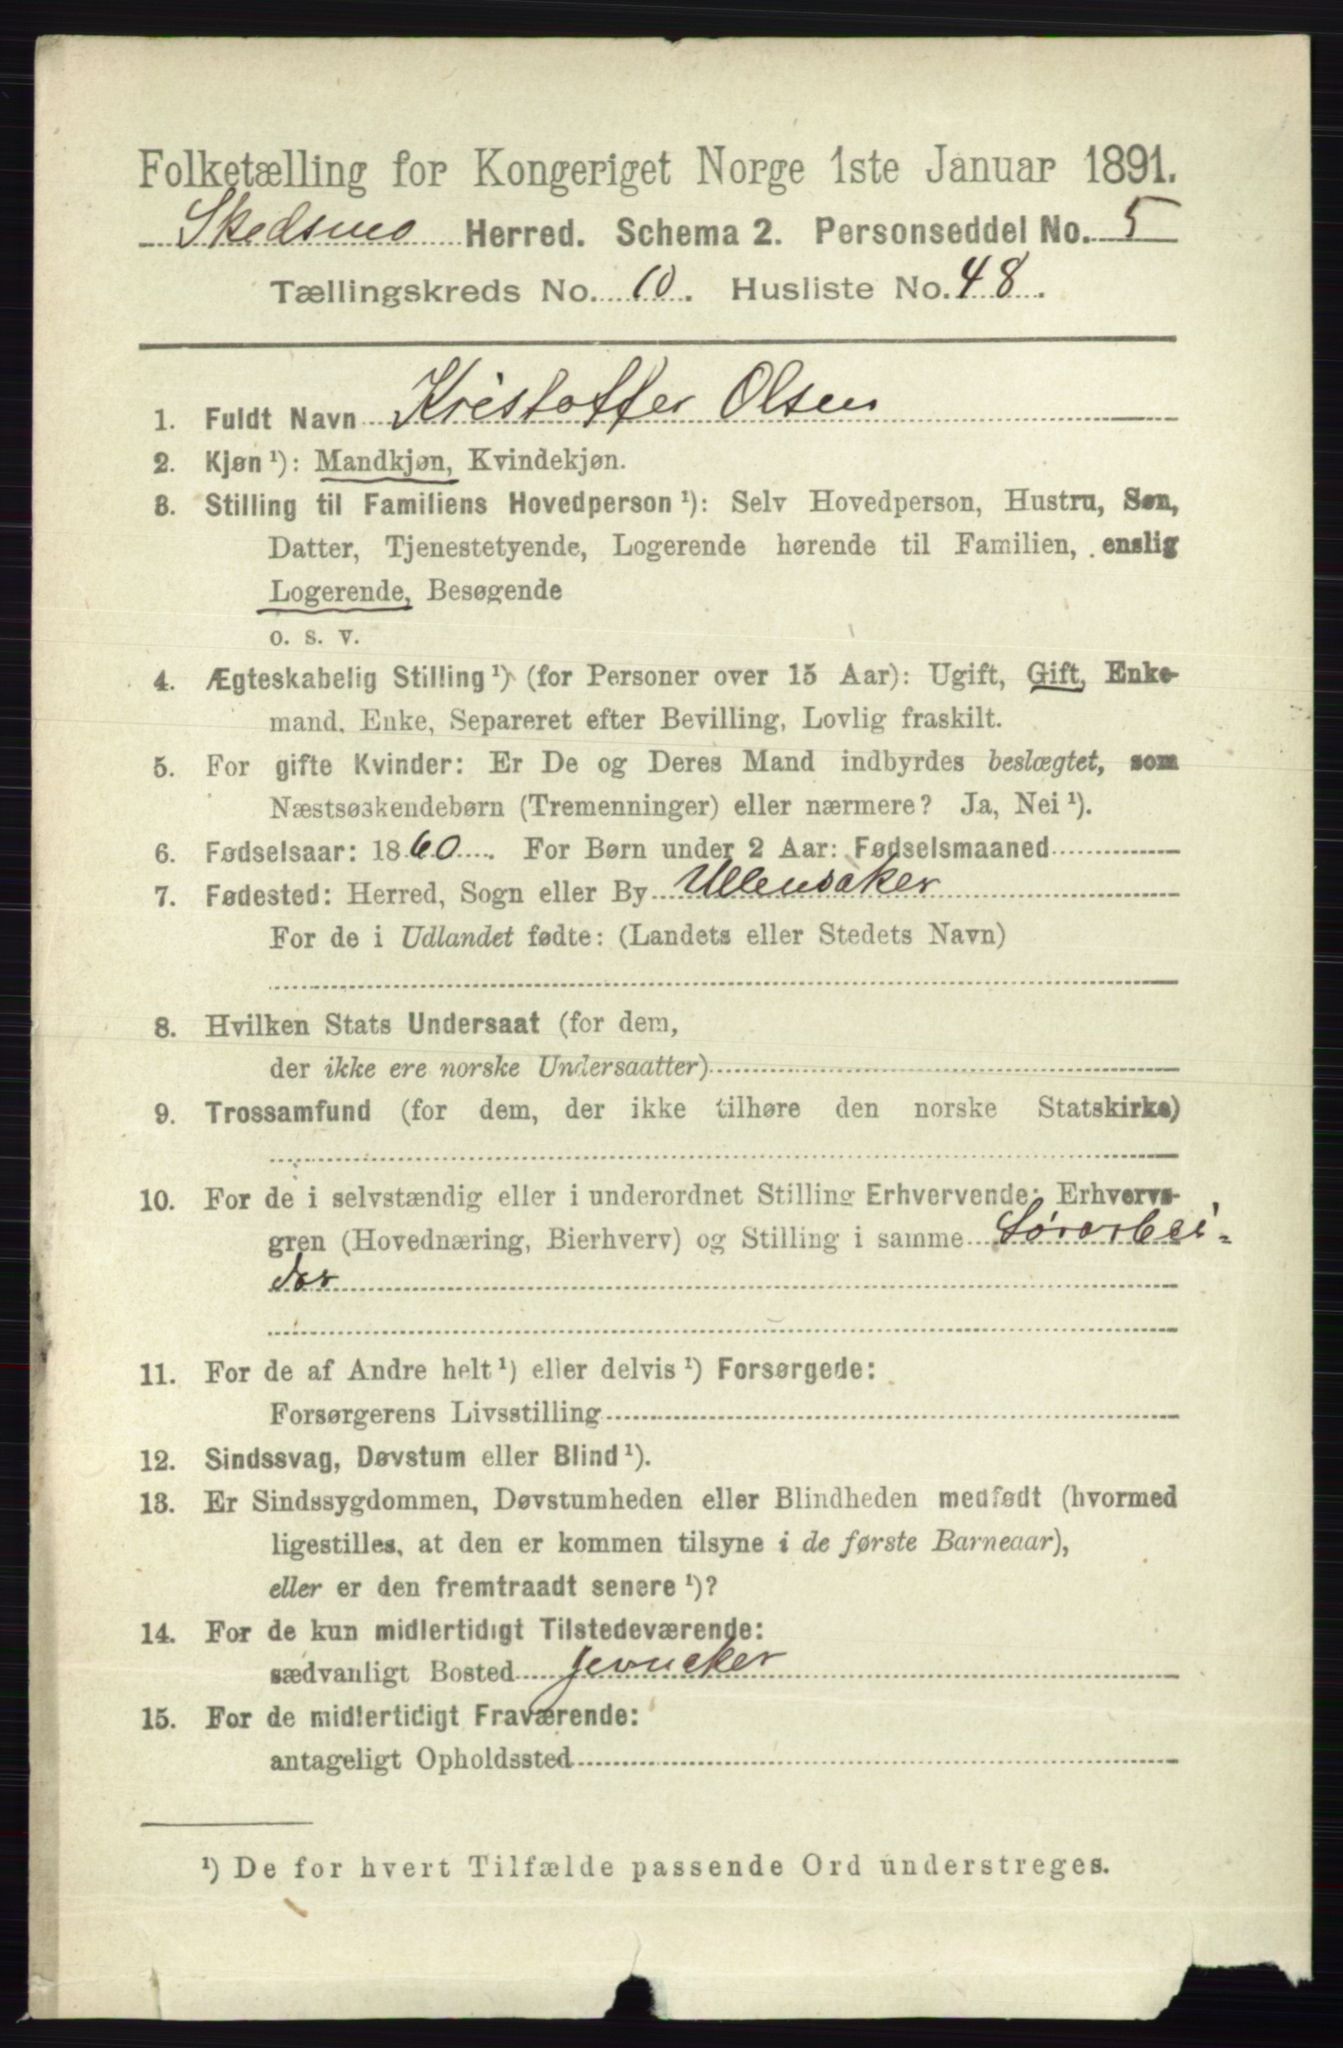 Folketælling for Kongeriget Norge 1ste Januar 1891.
Skedsmo Herred. Schema 2. Personseddel No. 5
Tællingskreds No. 10. Husliste No. 48.
1. Fuldt Navn Kristoffer Olsen
2. Kjøn¹): Mandkjøn, Kvindekjøn.
3. Stilling til Familiens Hovedperson¹): Selv Hovedperson, Hustru, Søn,
Datter, Tjenestetyende, Logerende hørende til Familien, enslig
Logerende, Besøgende
o. s. v.
4. Ægteskabelig Stilling¹) (for Personer over 15 Aar): Ugift, Gift, Enke-
mand, Enke, Separeret efter Bevilling, Lovlig fraskilt.
5. For gifte Kvinder: Er De og Deres Mand indbyrdes beslægtet, som
Næstsøskendebørn (Tremenninger) eller nærmere? Ja, Nei¹).
6. Fødselsaar: 1860. For Børn under 2 Aar: Fødselsmaaned
7. Fødested: Herred, Sogn eller By Ullensaker
For de i Udlandet fødte: (Landets eller Stedets Navn)
8. Hvilken Stats Undersaat (for dem,
der ikke ere norske Undersaatter)
9. Trossamfund (for dem, der ikke tilhøre den norske Statskirke)
10. For de i selvstændig eller i underordnet Stilling Erhvervende: Erhvervs-
gren (Hovednæring, Bierhverv) og Stilling i samme
der
11. For de af Andre helt¹) eller delvis¹) Forsørgede:
Forsørgerens Livsstilling
12. Sindssvag, Døvstum eller Blind¹).
13. Er Sindssygdommen, Døvstumheden eller Blindheden medfødt (hvormed
ligestilles, at den er kommen tilsyne i de første Barneaar),
eller er den fremtraadt senere¹)?
14. For de kun midlertidigt Tilstedeværende:
sædvanligt Bosted
15. For de midlertidigt Fraværende:
antageligt Opholdssted
¹) De for hvert Tilfælde passende Ord understreges.